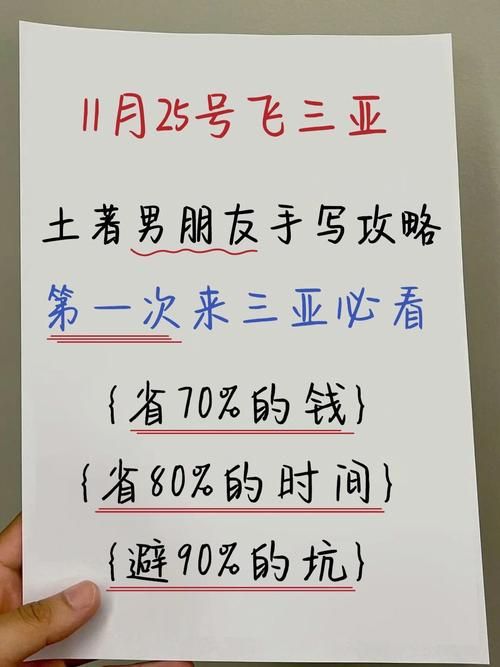 11月25号飞三亚
土著男朋友手写攻略
第一次来三亚必看
{省70%的钱}
{省80%的时间}
{避90%的坑}